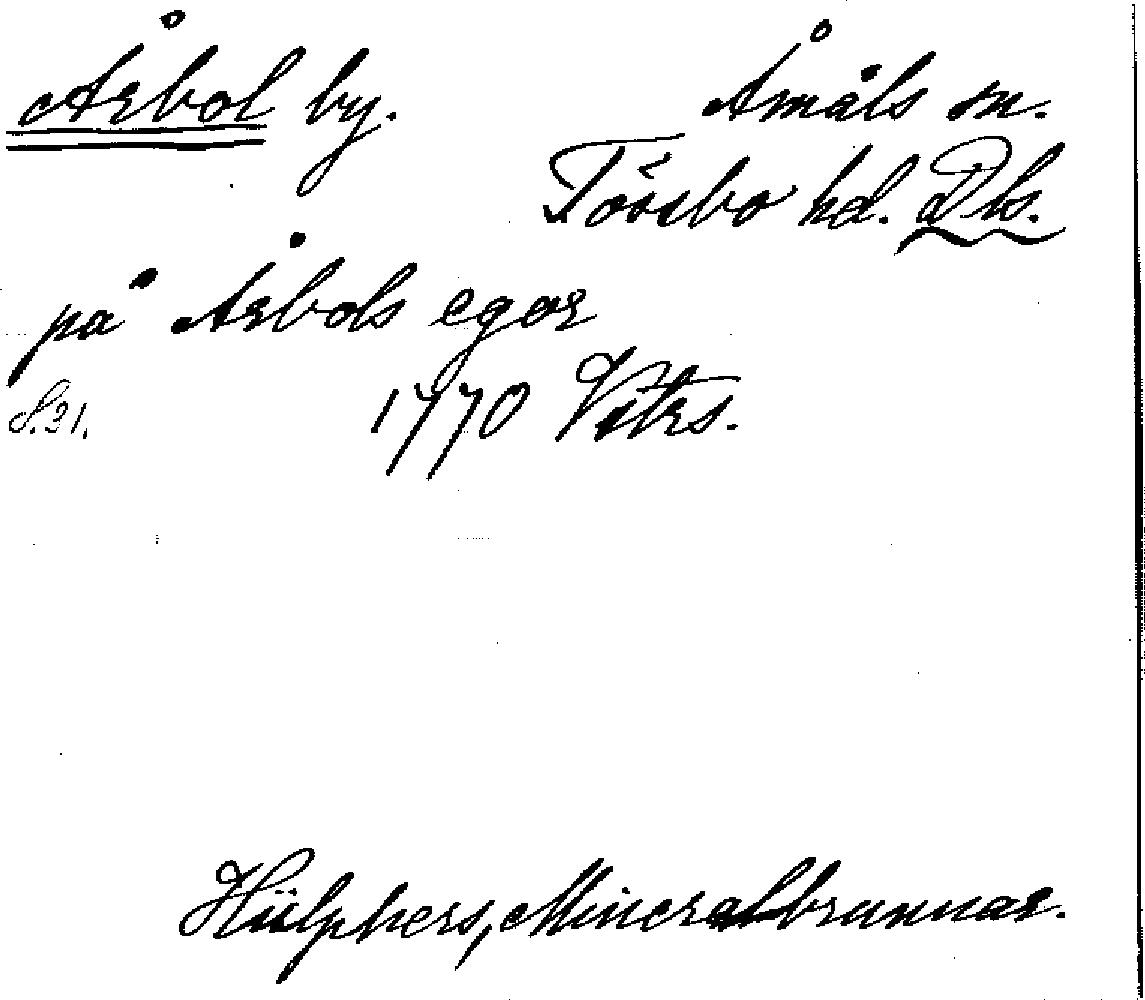 Årbol by. Åmåls sn.
Tössbo hd. Dls.
på Årbols egor
S.21. 1770 Vitrs.
Hülphers, Mineralbrunnar.